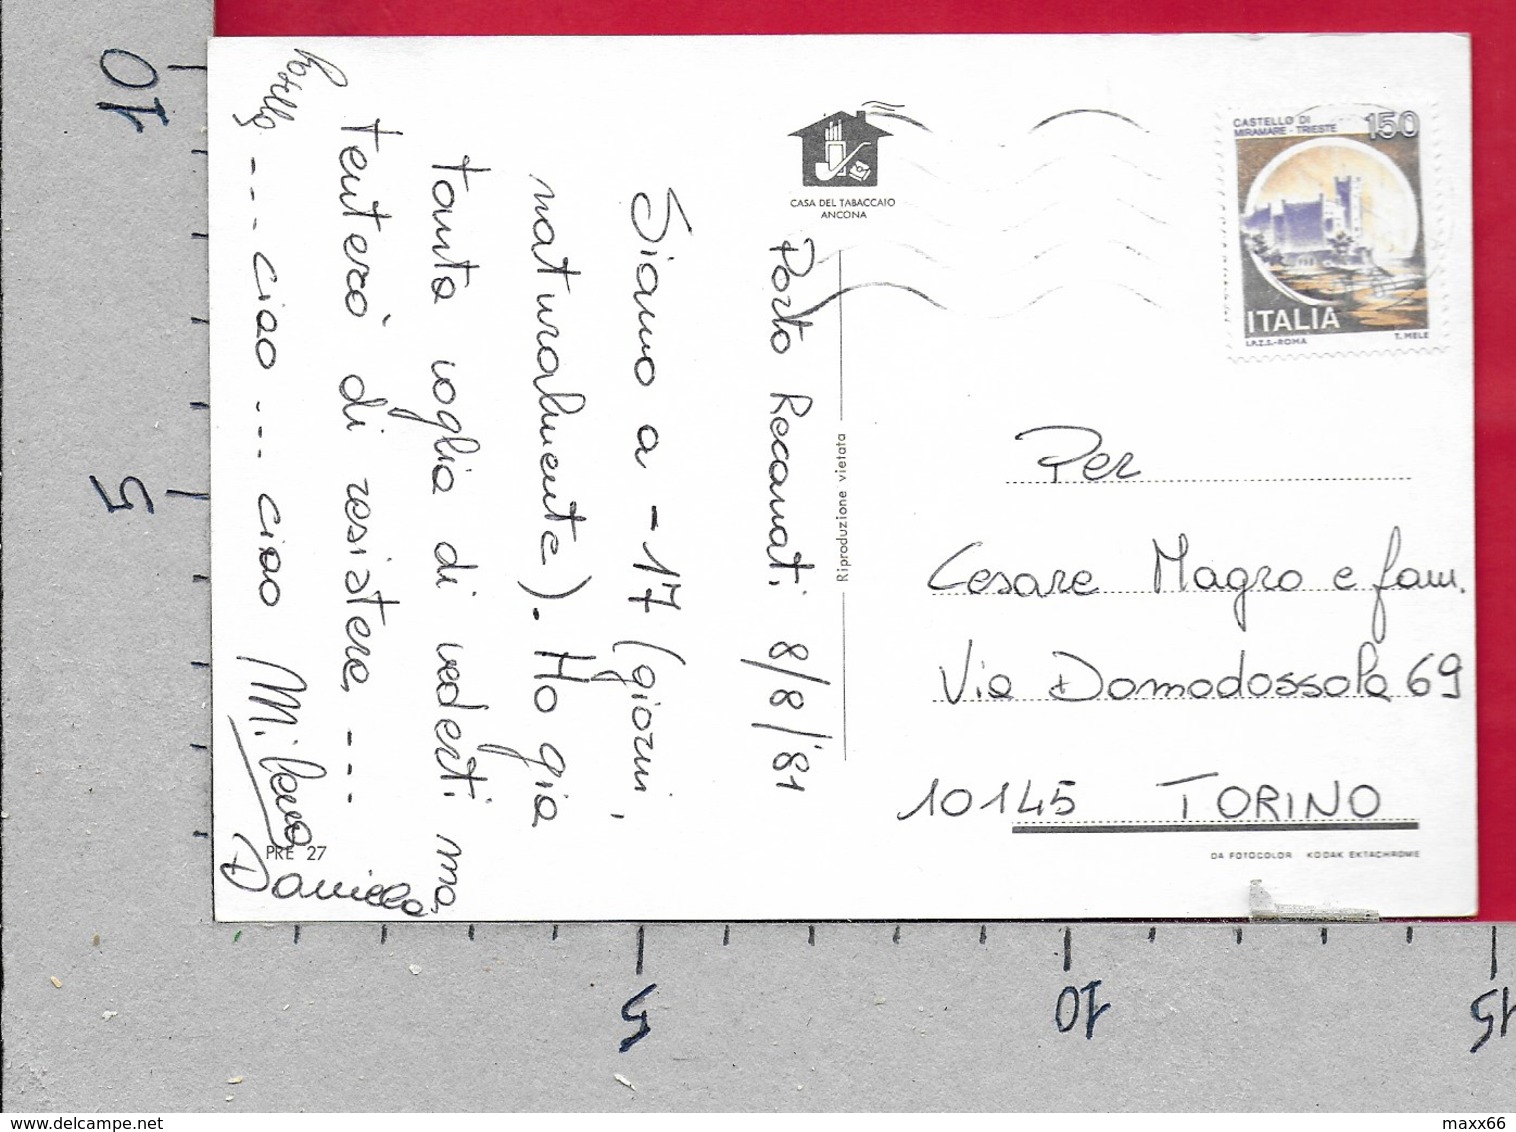 10
5
5
10
15
CASTELLO DI
MIRAMARE - TRIESTE
150
ITALIA
I.P.Z.S.-ROMA
T. MELE
CASA DEL TABACCAIO
ANCONA
Riproduzione vietata
Porto Recanati 8/8/'81
Siamo a -17 (giorni,
naturalmente). Ho già
tanta voglia di vederti ma
tenterò di resistere ---
--- ciao --- ciao Milena
Daniela
PRE 27
Per
Cesare Magro e fam.
Via Domodossola 69
10145 TORINO
DA FOTOCOLOR KODAK EKTACHROME
delcampe.net
maxx66